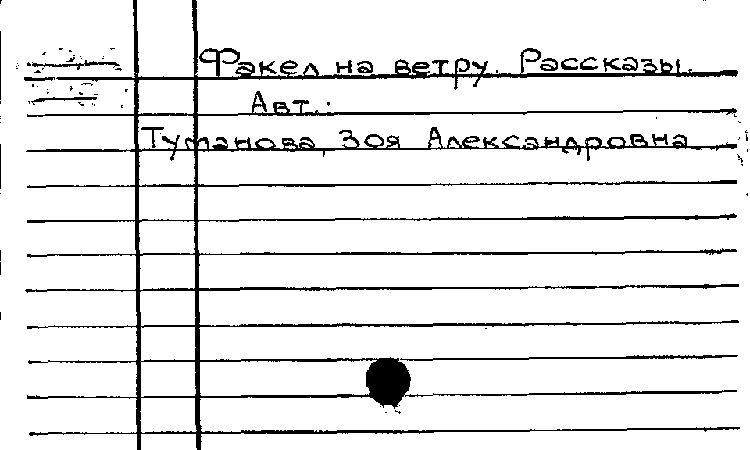 Факел на ветру. Рассказы.
Авт.:
Туманова, Зоя Александровна